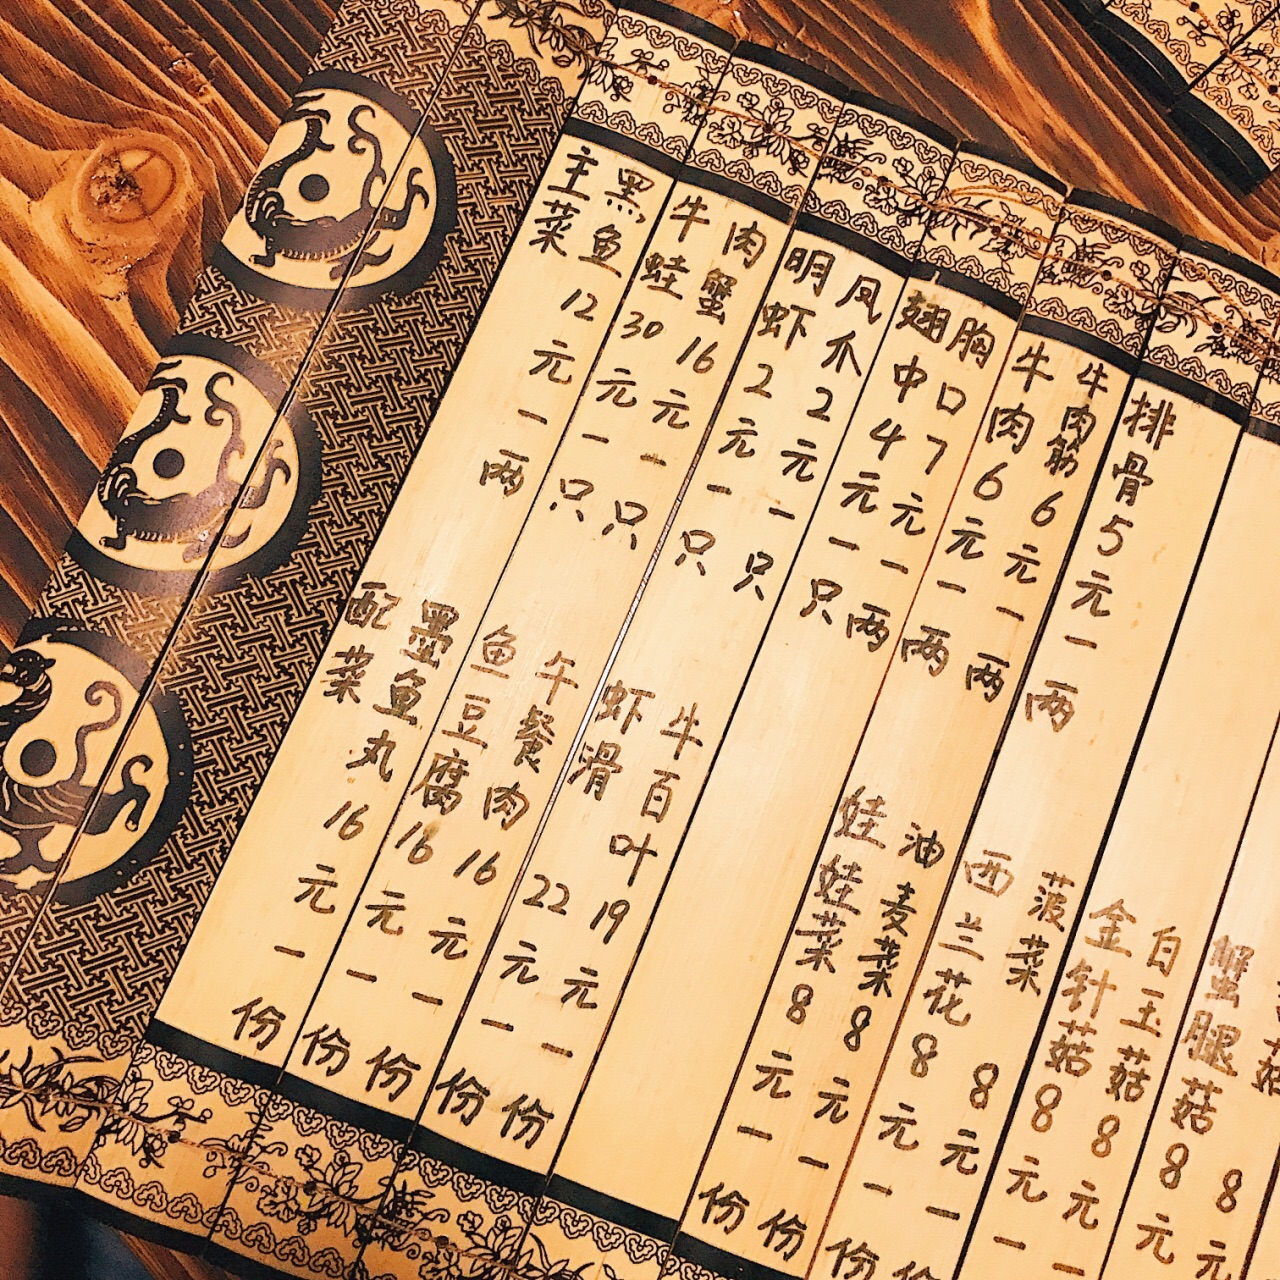 主菜
黑鱼12元一两
牛蛙30元一只
肉蟹16元一只
明虾2元一只
凤爪2元一只
翅中4元一只
胸口7元一两
牛肉6元一两
牛肉筋6元一两
排骨5元一两
配菜
墨鱼丸16元一份
鱼豆腐16元一份
午餐肉16元一份
虾滑22元一份
牛百叶19元一份
娃娃菜8元一份
油麦菜8元一份
西兰花8元一份
菠菜8元一份
金针菇8元一
白玉菇8元
蟹腿菇8元
菇8元